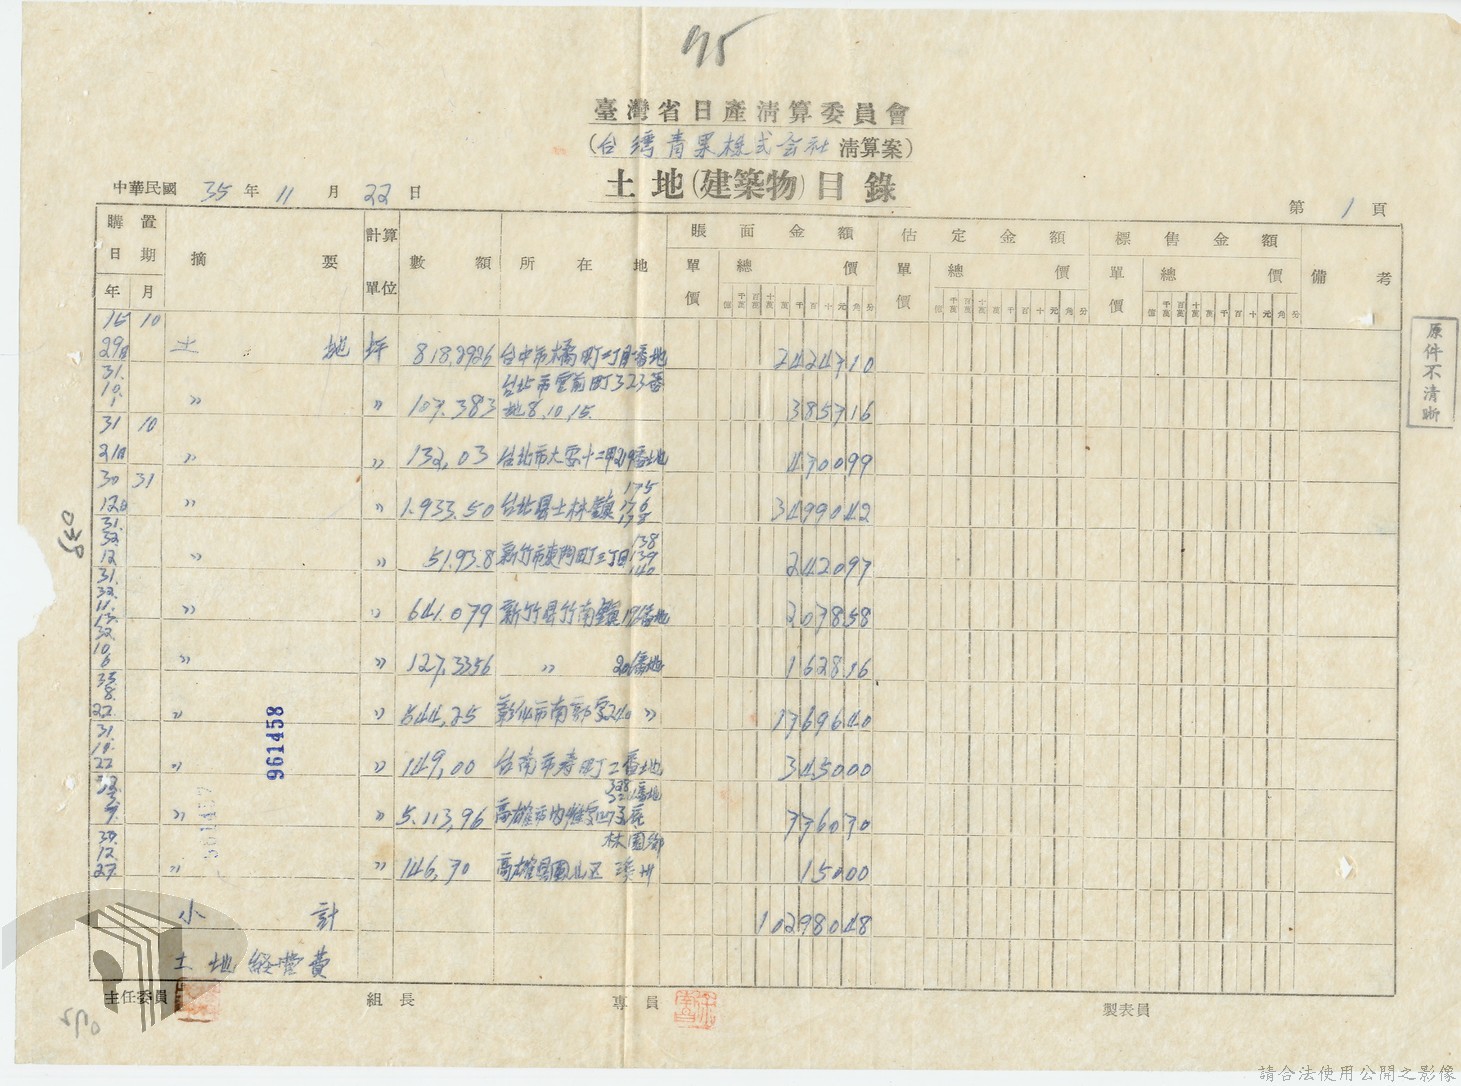 95
臺灣省日產清算委員會
(台灣青果株式会社清算案)
中華民國 35 年 11 月 22 日
土地(建築物)目錄
第 1 頁
購置日期 摘要 計算單位 數額 所在地 賬面金額 估定金額 標售金額 備考
年 月 單價 總價 單價 總價 單價 總價
億 千萬 百萬 十萬 萬 千 百 十 元 角 分 億 千萬 百萬 十萬 萬 千 百 十 元 角 分 億 千萬 百萬 十萬 萬 千 百 十 元 角 分
土地 坪 818.2926 台中市橘町 番地 2424710
31. 10. 1 〃 〃 107.383 台北市 町323番地8.10.15. 385716
31 10 21日 〃 〃 132,03 台北市大安十二甲219番地 470099
30 31 12日 〃 〃 1.933.50 台北県士林鎮 175 176 178 3499042
31. 32. 12 〃 〃 51.93.8 新竹市東門町三丁目 138 139 140 242097
31. 32. 11. 〃 〃 641.079 新竹县竹南鎮 番地 207858
32. 10. 6 〃 〃 127,3356 〃 番地 162816
35 8. 22. 〃 〃 544,25 彰化市南郭字240 〃 1769640
31. 22 〃 〃 149,00 台南市寿町二番土地 345000
〃 〃 5.113,96 高雄市内惟字 番地 776070
30. 12. 27. 〃 〃 146,70 高雄县鳳山区林園鄉溪州 15000
小計 10298048
土地経営費
主任委員 組長 專員 製表員
原件不清晰
961458
請合法使用公開之影像